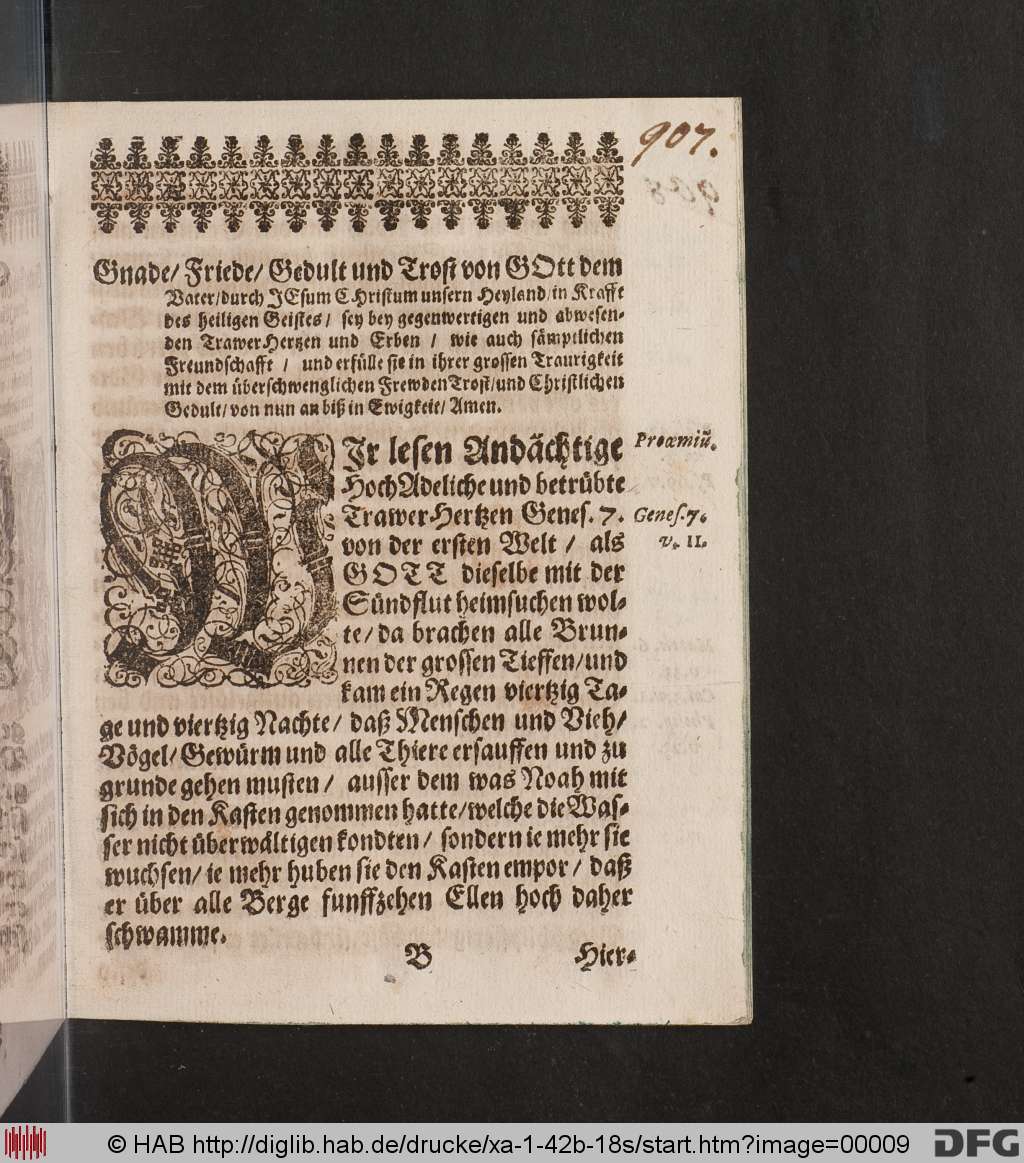 907.
Gnade/ Friede/ Gedult und Trost von GOtt dem
Vater/durch JEsum CHristum unsern Heyland/in Krafft
des heiligen Geistes/ sey bey gegenwertigen und abwesen-
den TrawerHertzen und Erben / wie auch sämptlichen
Freundschafft / und erfülle sie in ihrer grossen Traurigkeit
mit dem überschwenglichen FrewdenTrost/und Christlichen
Gedult/ von nun an biß in Ewigkeit/ Amen.
WIr lesen Andächtige
Proœmiũ.
HochAdeliche und betrübte
TrawerHertzen Genes. 7.
Genes. 7.
von der ersten Welt / als
v. 11.
GOTT dieselbe mit der
Sündflut heimsuchen wol-
te/ da brachen alle Brun-
nen der grossen Tieffen/und
kam ein Regen viertzig Ta-
ge und viertzig Nachte/ daß Menschen und Vieh/
Vögel/ Gewürm und alle Thiere ersauffen und zu
grunde gehen musten/ ausser dem was Noah mit
sich in den Kasten genommen hatte/welche die Was-
ser nicht überwältigen kondten/ sondern ie mehr sie
wuchsen/ ie mehr huben sie den Kasten empor/ daß
er über alle Berge funffzehen Ellen hoch daher
schwamme.
B
Hier-
© HAB http://diglib.hab.de/drucke/xa-1-42b-18s/start.htm?image=00009
DFG